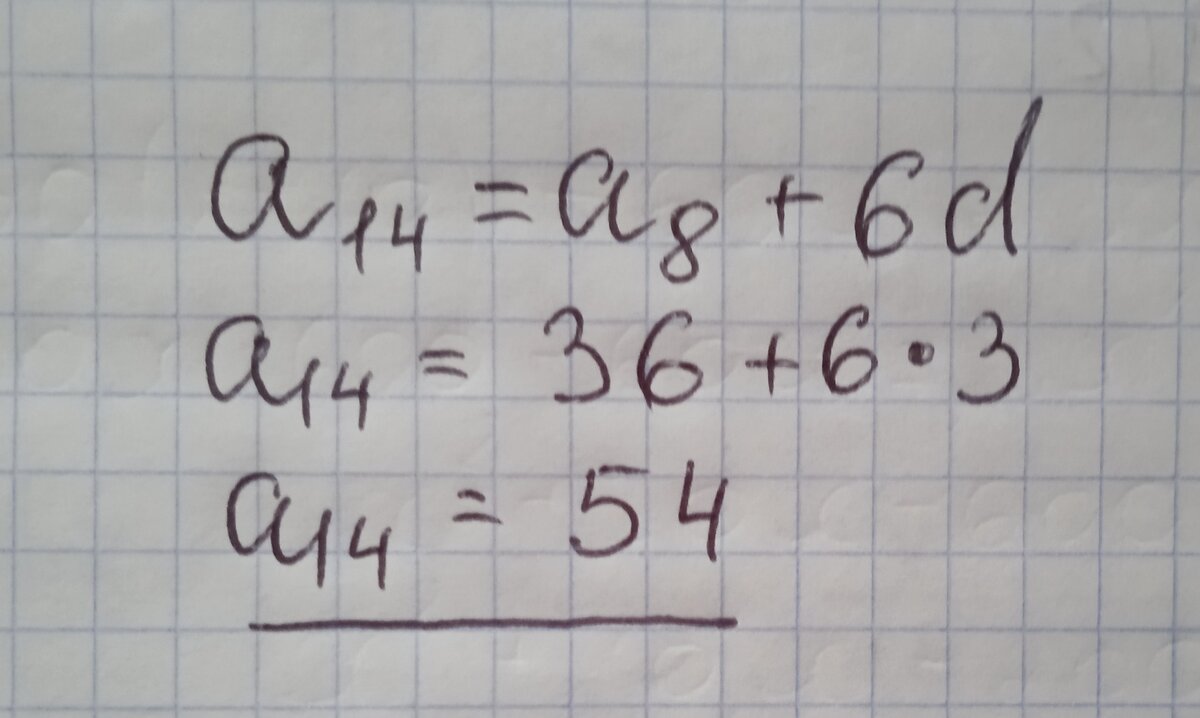 a₁₄ = a₈ + 6d
a₁₄ = 36 + 6 · 3
a₁₄ = 54